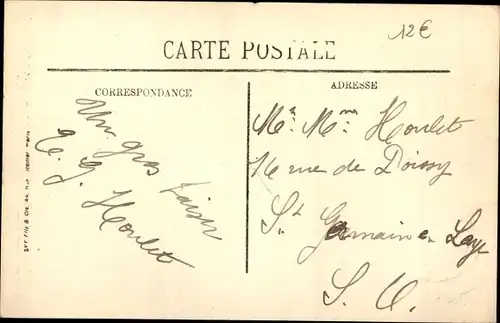 12€
CARTE POSTALE
CORRESPONDANCE
ADRESSE
Un gros baiser
E. J. Houlet
Mr. Mme Houlet
16 rue de Poissy
St Germain en Laye
S. O.